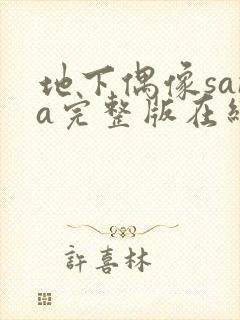 地下偶像sa
a完整版在
許喜林